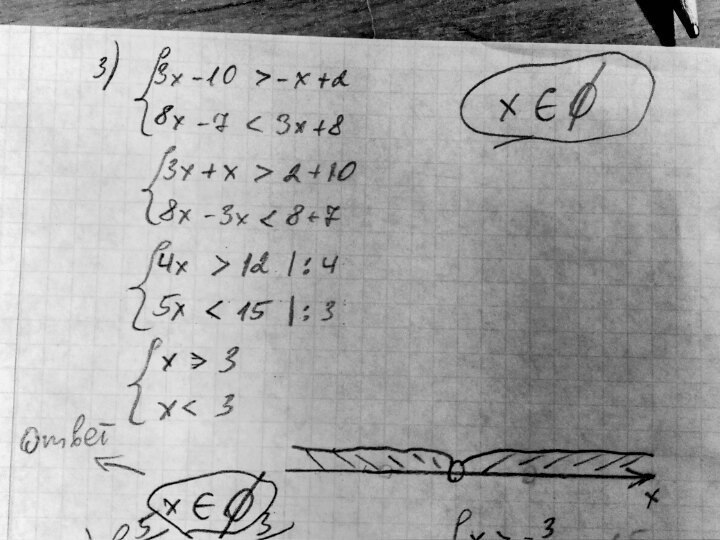 3) { 3x - 10 > -x + 2
{ 8x - 7 < 3x + 8
x ∈ ∅
{ 3x + x > 2 + 10
{ 8x - 3x < 8 + 7
{ 4x > 12 | : 4
{ 5x < 15 | : 3
{ x ⩾ 3
{ x < 3
Ответ
x
x ∈ ∅